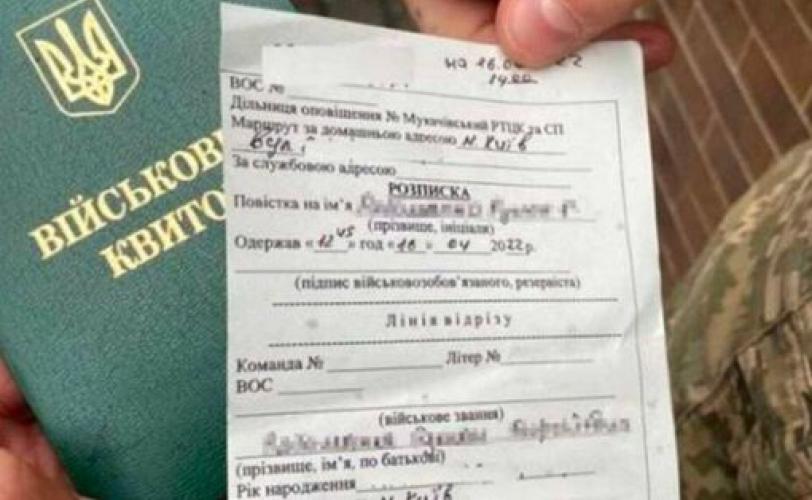 ВІЙСЬКОВ
КВИТО
на 16.0
14
ВОС №
Дільниця оповіщення № Мукачівський РТЦК та СП
Маршрут за домашньою адресою м. Київ
вул
За службовою адресою
РОЗПИСКА
Повістка на ім'я
(прізвище, ініціали)
Одержав « 12 45 » год « 16 » 04 2022 р.
(підпис військовозобов'язаного, резервіста)
Лінія відрізу
Команда № Літер №
ВОС
(військове звання)
(прізвище, ім'я, по батькові)
Рік народження
м. Київ